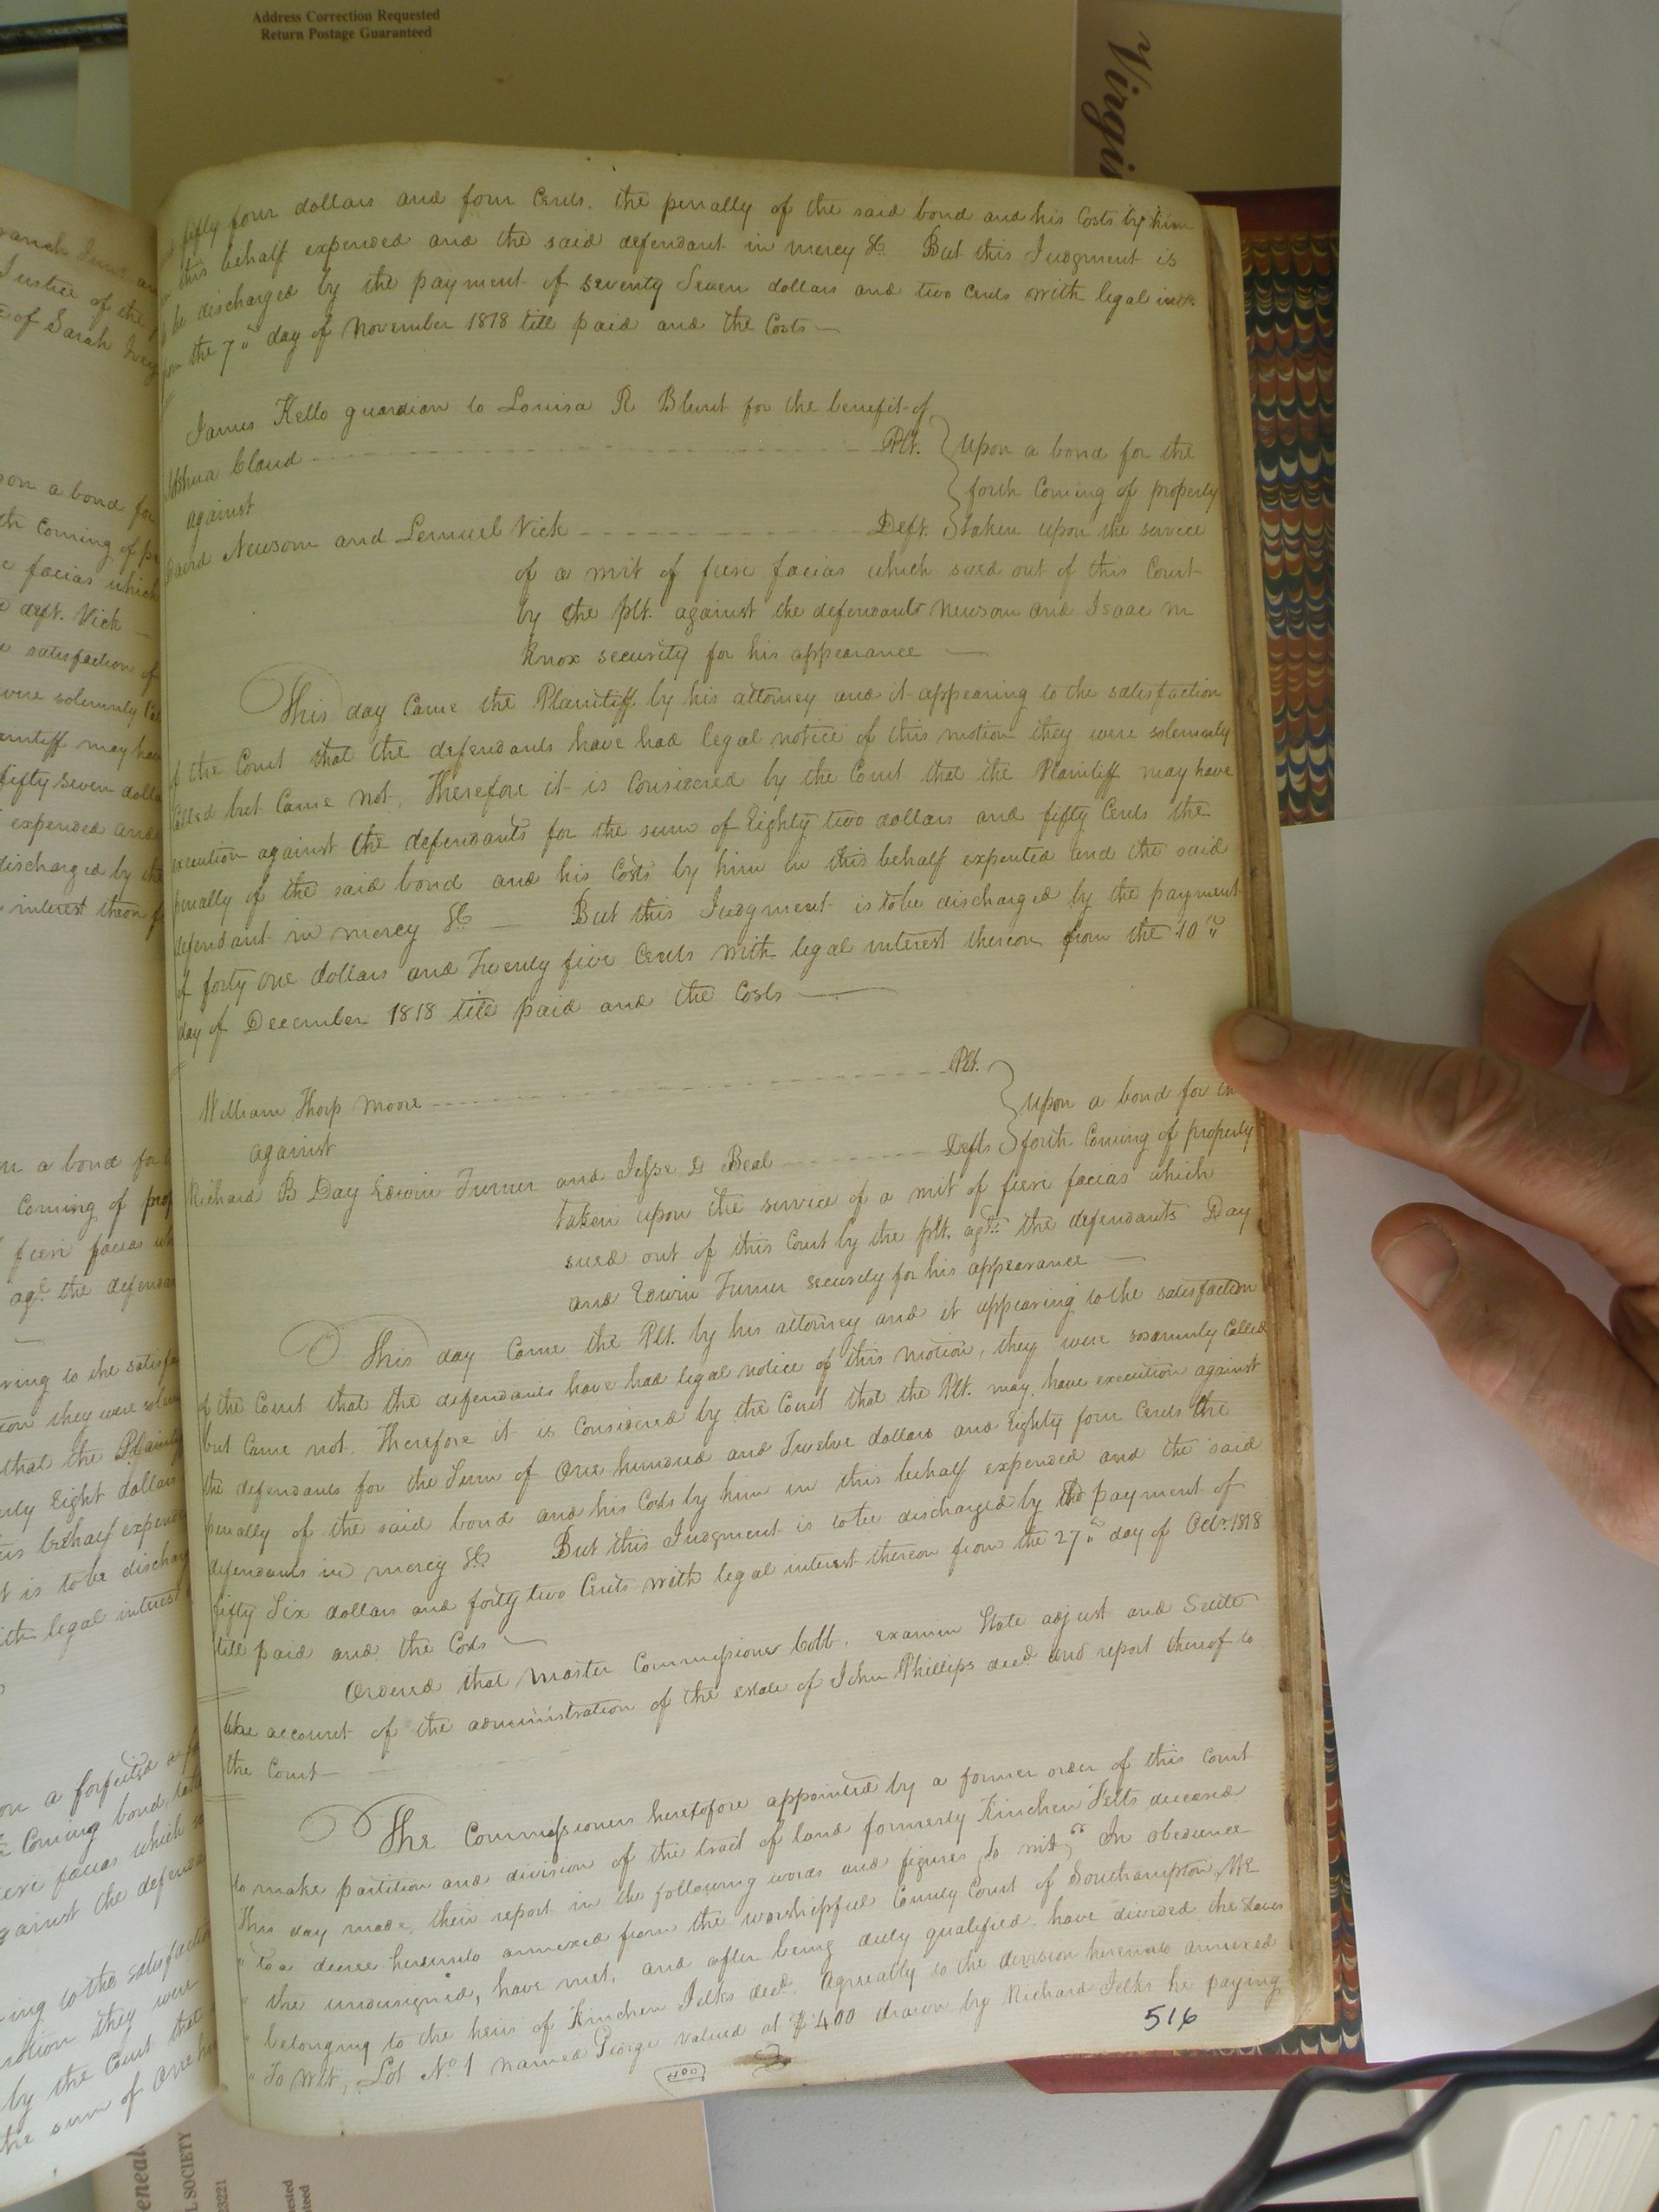 Address Correction Requested
Return Postage Guaranteed
Virgi
fifty four dollars and four Cents. the penalty of the said bond and his Costs by him
this behalf expended and the said defendant in mercy &c. But this Judgment is
be discharged by the payment of seventy Seven dollars and two Cents with legal
from the 7th day of November 1818 till paid and the Costs
James Kello guardian to Louisa R Blunt for the benefit of
Joshua Claud Plt.
against
David Newsom and Lemuel Vick Deft.
Upon a bond for the
forth Coming of property
taken upon the service
of a writ of fieri facias which sued out of this Court
by the plt. against the defendants Newsom and Isaac M
Knox security for his appearance
This day Came the Plaintiff by his attorney and it appearing to the satisfaction
of the Court that the defendants have had legal notice of this motion they were solemnly
Called but Came not. Therefore it is Considered by the Court that the Plaintiff may have
execution against the defendants for the sum of Eighty two dollars and fifty Cents the
penalty of the said bond and his Costs by him in this behalf expended and the said
defendant in mercy &c But this Judgment is to be discharged by the payment
of forty one dollars and Twenty five Cents with legal interest thereon from the 10th
day of December 1818 till paid and the Costs
William Thorp Moore Plt.
against
Richard B Day Edwin Turner and Jesse D Beal Defts
Upon a bond for the
forth Coming of property
taken upon the service of a writ of fieri facias which
sued out of this Court by the plt. agst. the defendants Day
and Edwin Turner security for his appearance
This day Came the Plt. by his attorney and it appearing to the satisfaction
of the Court that the defendants have had legal notice of this motion, they were solemnly Called
but Came not. Therefore it is Considered by the Court that the Plt. may have execution against
the defendants for the Sum of One hundred and Twelve dollars and Eighty four Cents the
penalty of the said bond and his Costs by him in this behalf expended and the said
defendants in mercy &c But this Judgment is to be discharged by the payment of
fifty Six dollars and forty two Cents with legal interest thereon from the 27th day of Octr. 1818
till paid and the Costs
Ordered that Master Commissioner Cobb. examin State adjust and Settle
the account of the administration of the estate of John Phillips decd. and report thereof to
the Court
The Commissioners heretofore appointed by a former order of this Court
to make partition and division of the tract of land formerly Kinchen Jelks deceased
this day made their report in the following words and figures to wit, "In obedience
" To a decree hereunto annexed from the worshipful County Court of Southampton, We
" the undersigned, have met, and after being duly qualified have divided the slaves
" belonging to the heirs of Kinchen Jelks decd. Agreeably to the division hereunto annexed
" To Wit, Lot No. 1 named George valued at $400 drawn by Richard Jelks he paying
400
516